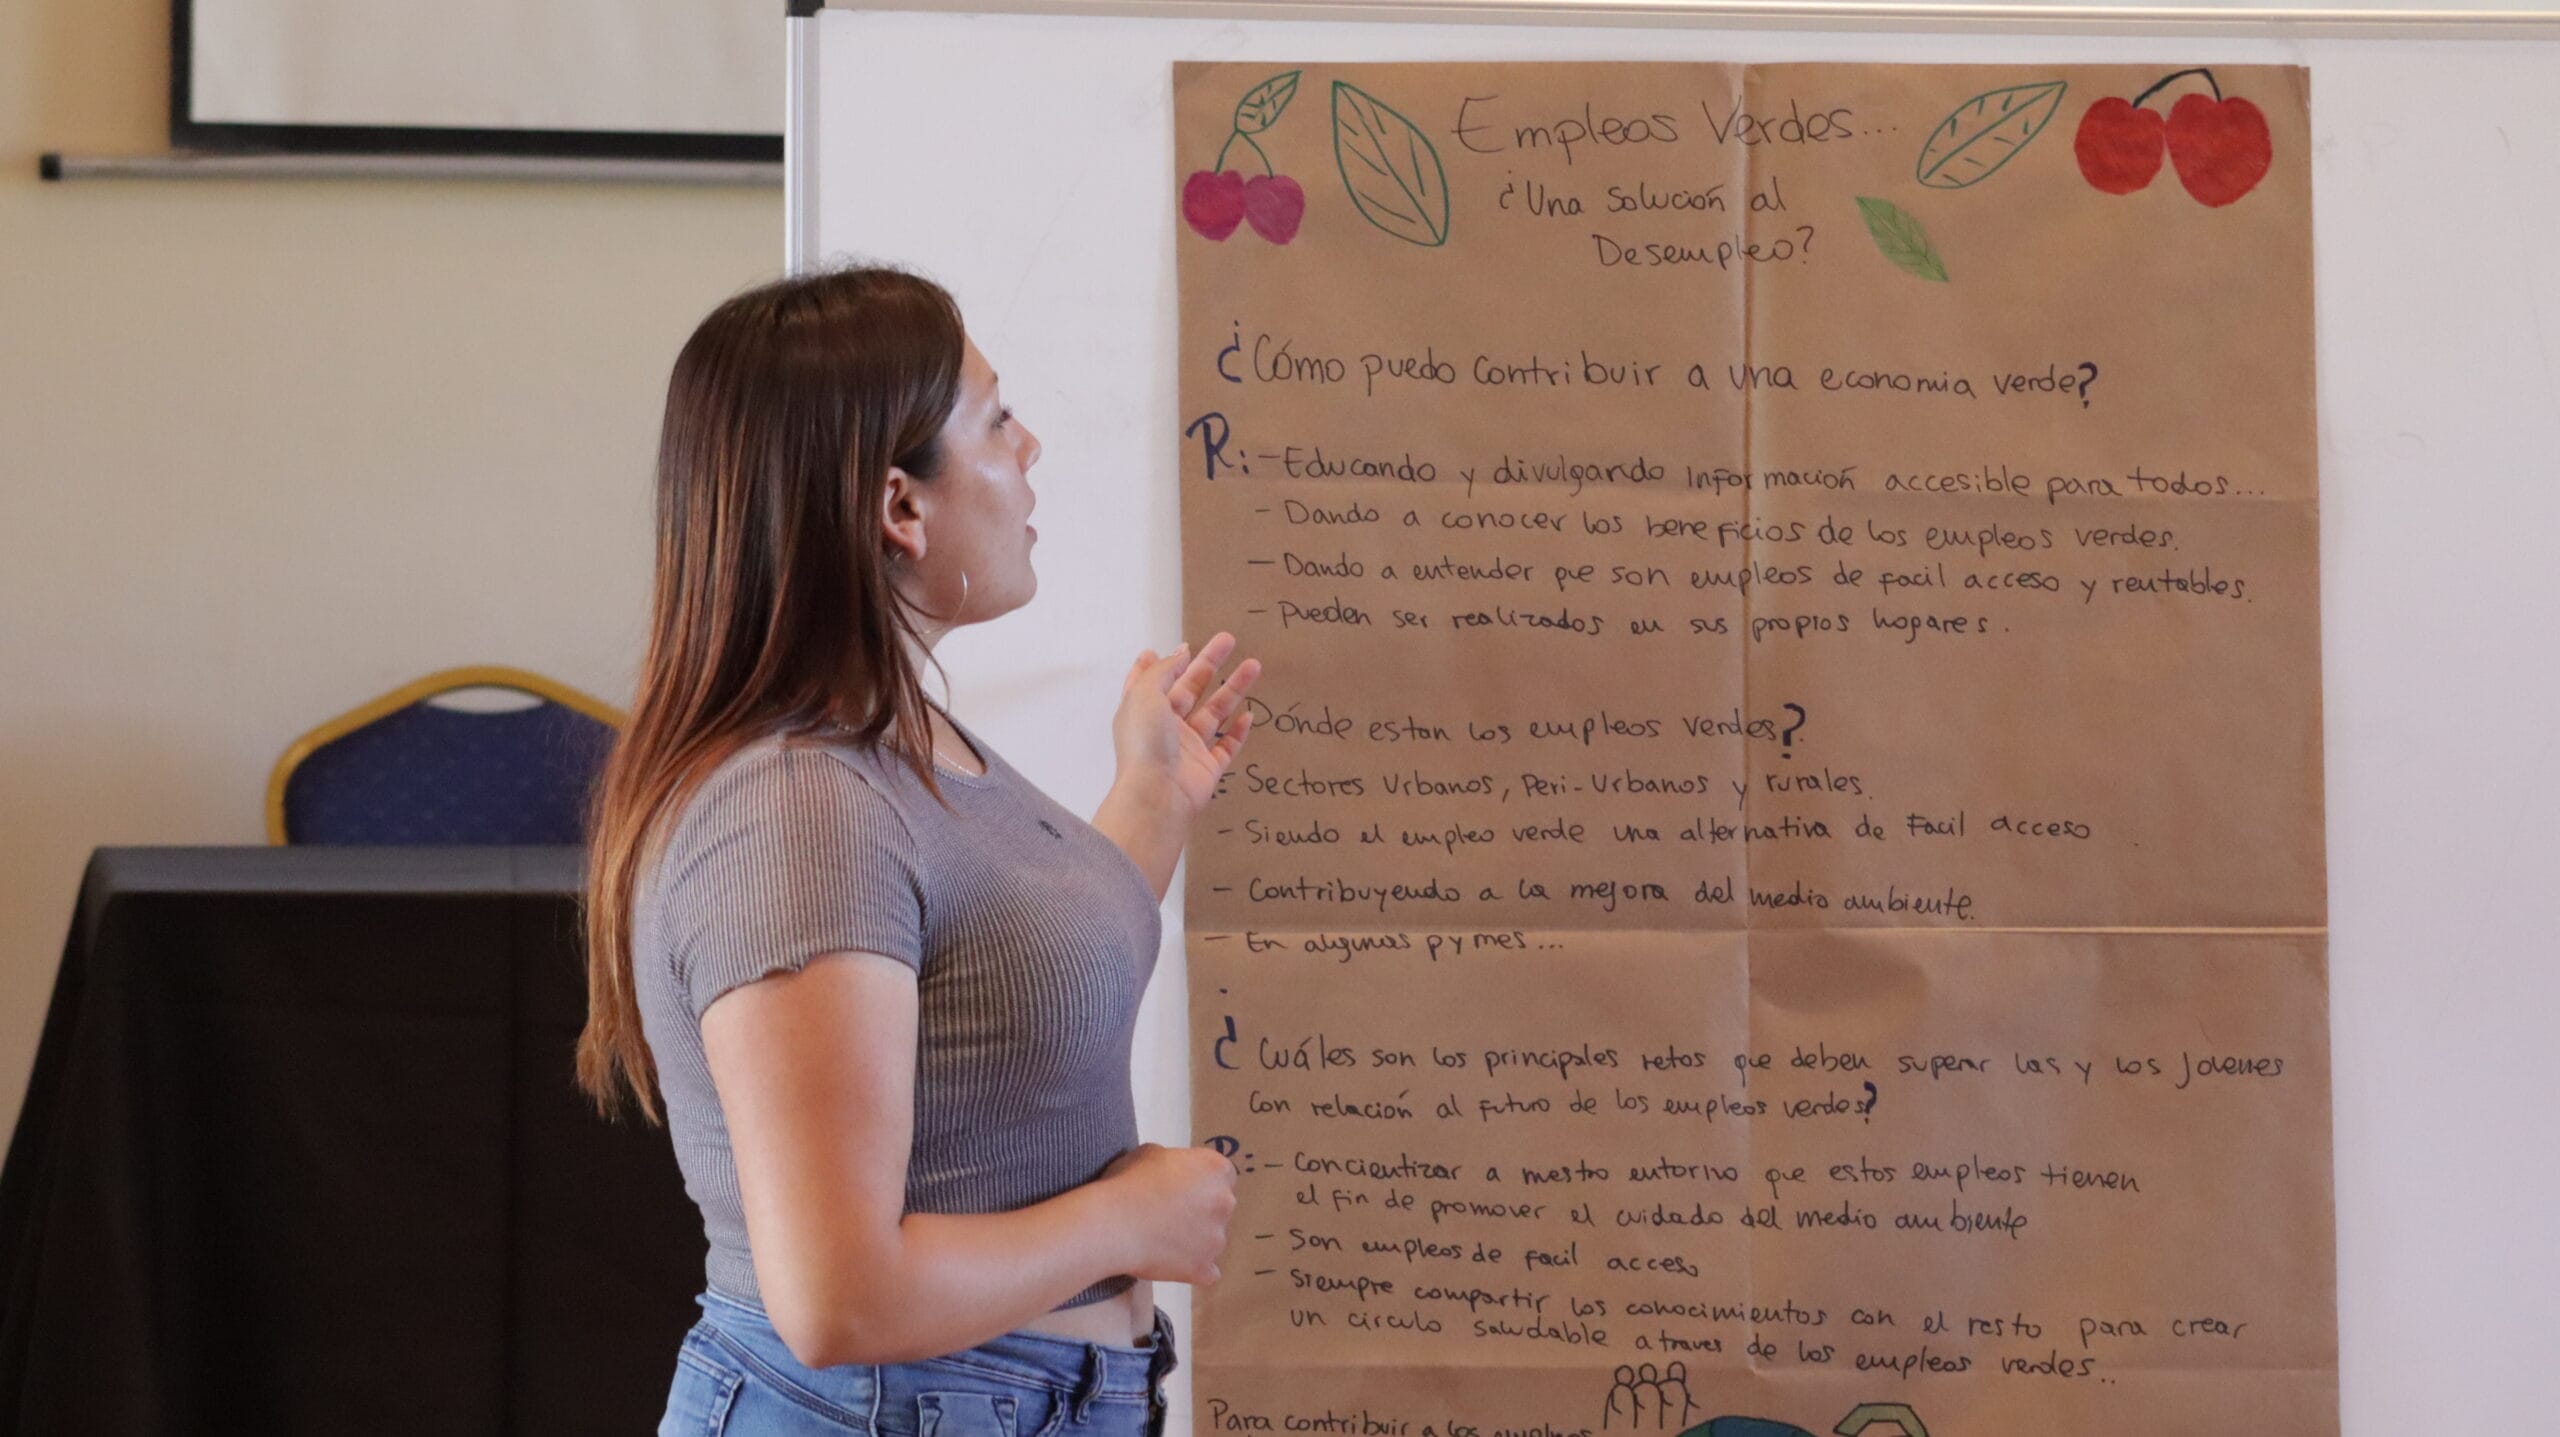 Empleos Verdes...
¿Una Solución al
Desempleo?
¿Cómo puedo contribuir a una economia verde?
R: - Educando y divulgando información accesible para todos...
- Dando a conocer los beneficios de los empleos verdes.
- Dando a entender que son empleos de facil acceso y rentables.
- Pueden ser realizados en sus propios hogares.
Dónde estan los empleos verdes?
- Sectores Urbanos, Peri-Urbanos y rurales.
- Siendo el empleo verde una alternativa de Facil acceso
- Contribuyendo a la mejora del medio ambiente.
- En algunas pymes...
¿Cuáles son los principales retos que deben superar las y los Jovenes
con relación al futuro de los empleos verdes?
R: - Concientizar a nuestro entorno que estos empleos tienen
el fin de promover el cuidado del medio ambiente
- Son empleos de facil acceso
- Siempre compartir los conocimientos con el resto para crear
un circulo saludable a traves de los empleos verdes..
Para contribuir a los empleos